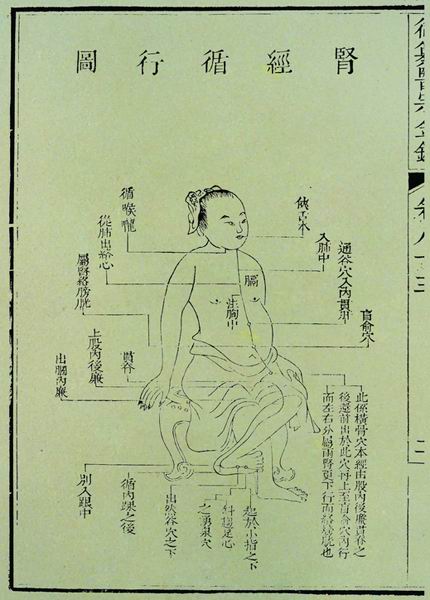 御纂醫宗金鑑
卷八十三
腎經循行圖
俠舌本
入肺中
通谷穴入內貫肝
肓俞穴
膈
注胸中
循喉嚨
從肺出絡心
屬腎絡膀胱
上股內後廉
貫脊
出膕內廉
此係橫骨穴本經由股內後廉貫脊之
後還前出於此穴再上至肓俞穴內行
而左右分屬兩腎更下行而絡膀胱也
起於小指之下
斜趨足心
之湧泉穴
出然谷穴之下
循內踝之後
別入跟中